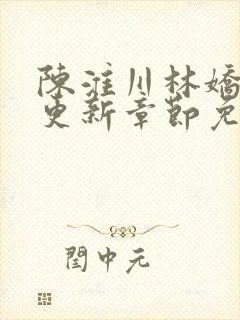 陳淮川林嬌
更新章節免
閏中元